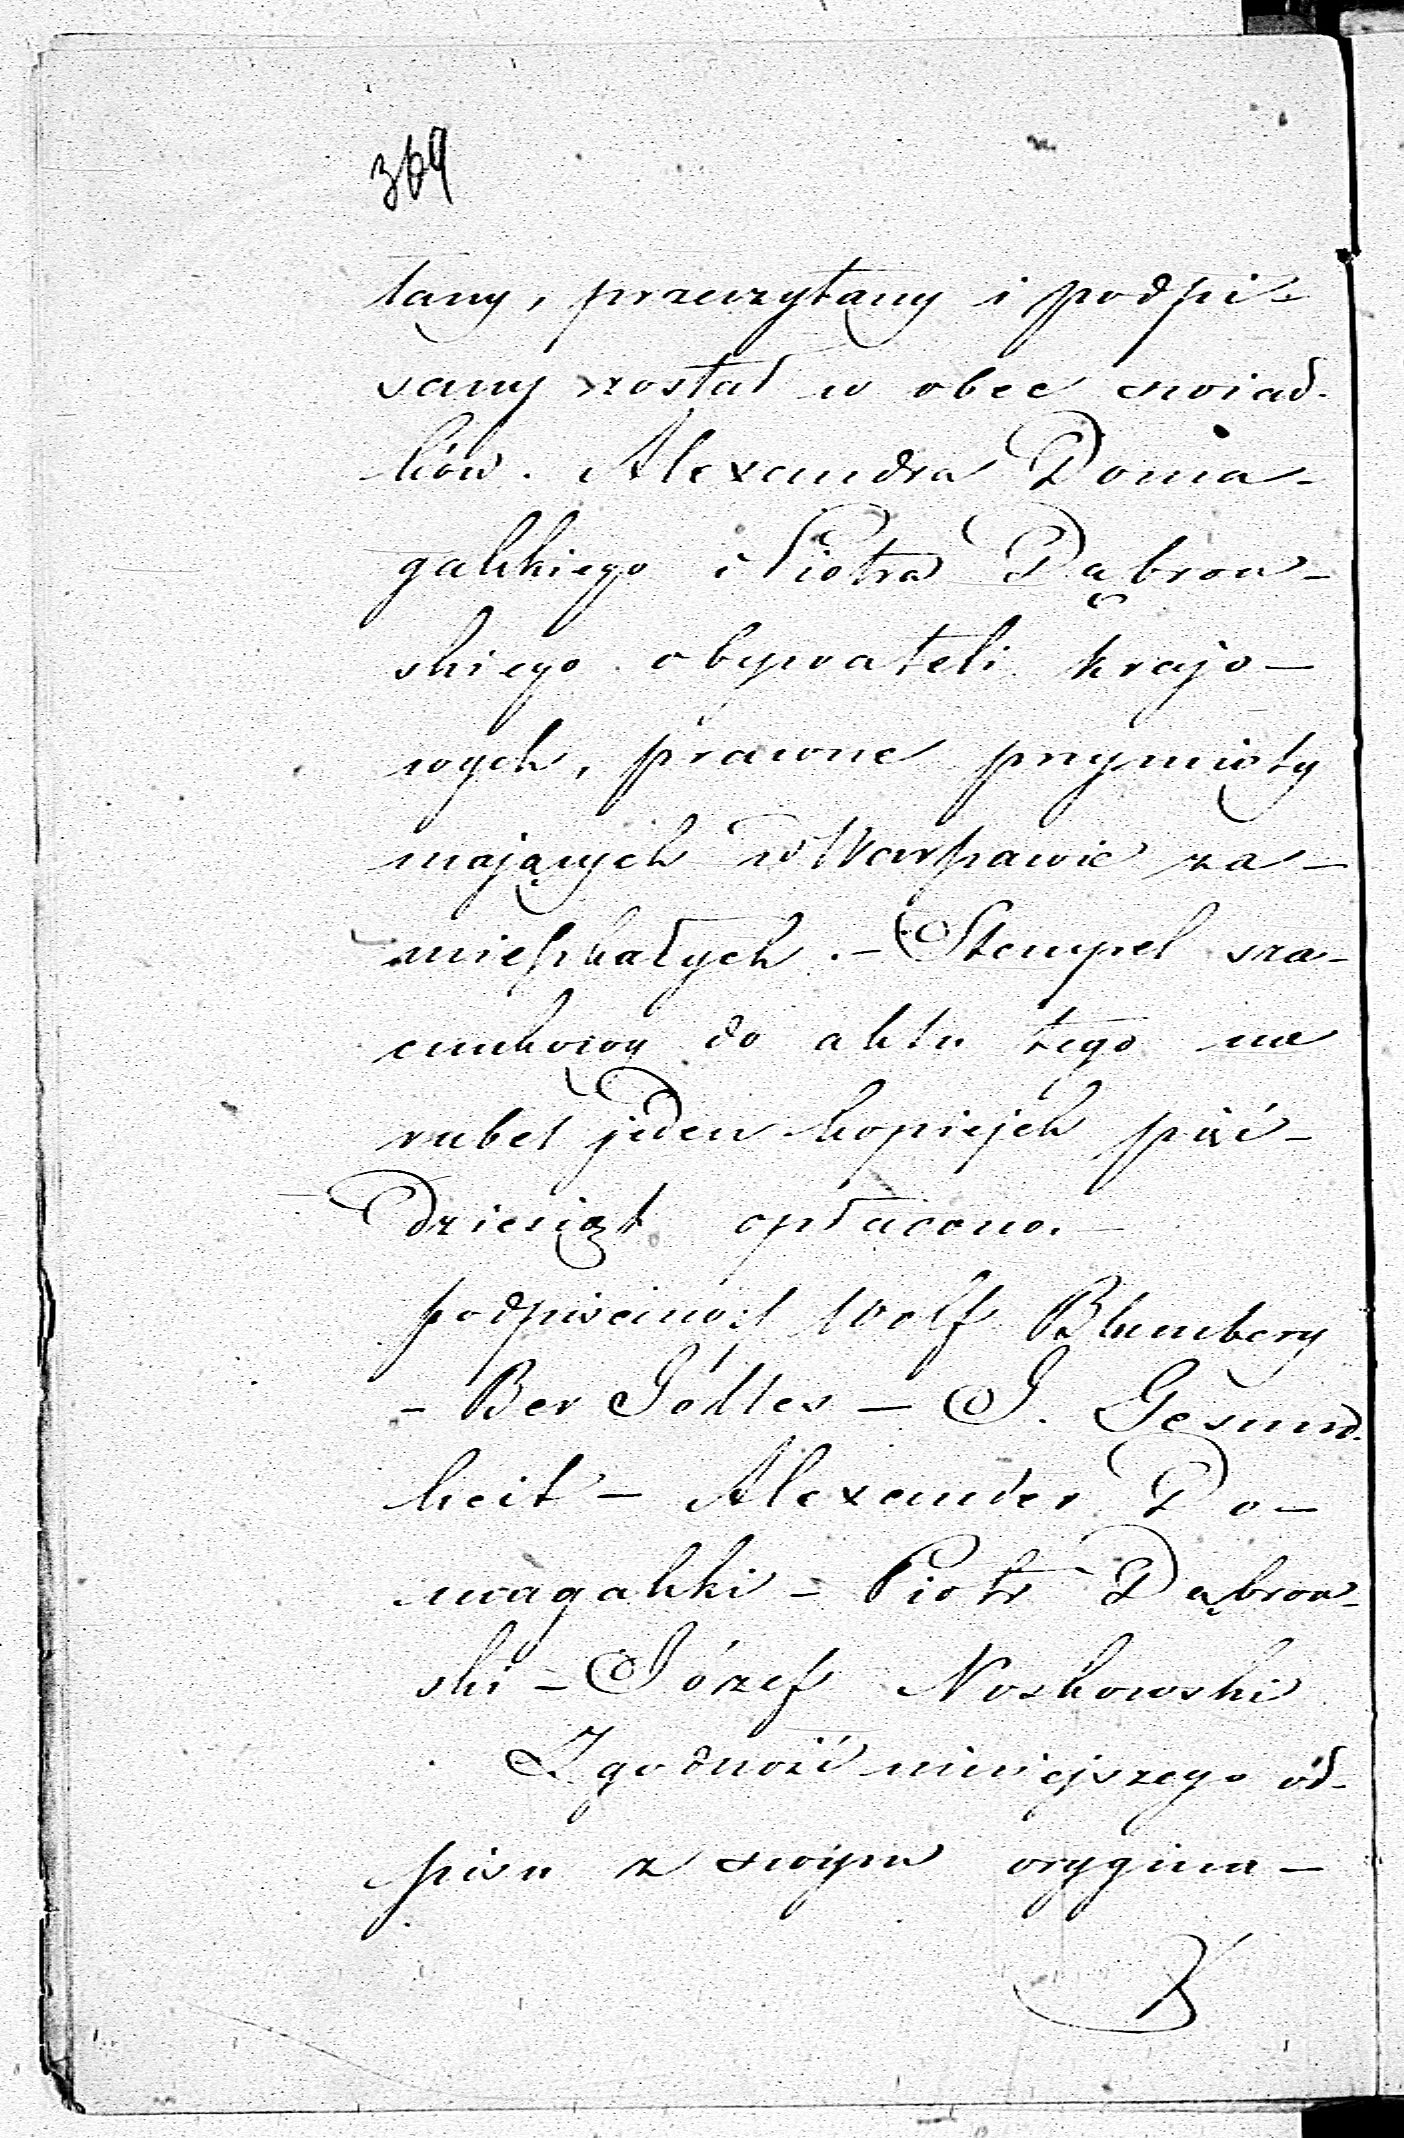 369
tany, przeczytany i podpi-
sany został w obec świad-
ków. Alexandra Doma-
galskiego i Piotra Dąbrow-
skiego obywateli krajo-
wych, prawne przymioty
mających w Warszawie za-
mieszkałych. – Stempel sza-
cunkowy do aktu tego na
rubel jeden kopiejek pięć-
dziesiąt opłacono. –
podpisano: Wolf Blumberg
– Ber Jódles – J. Gesund-
heit – Alexander Do-
magalski – Piotr Dąbrow-
ski – Józef Noskowski
Zgodność niniejszego od-
pisu z swoym orygina-